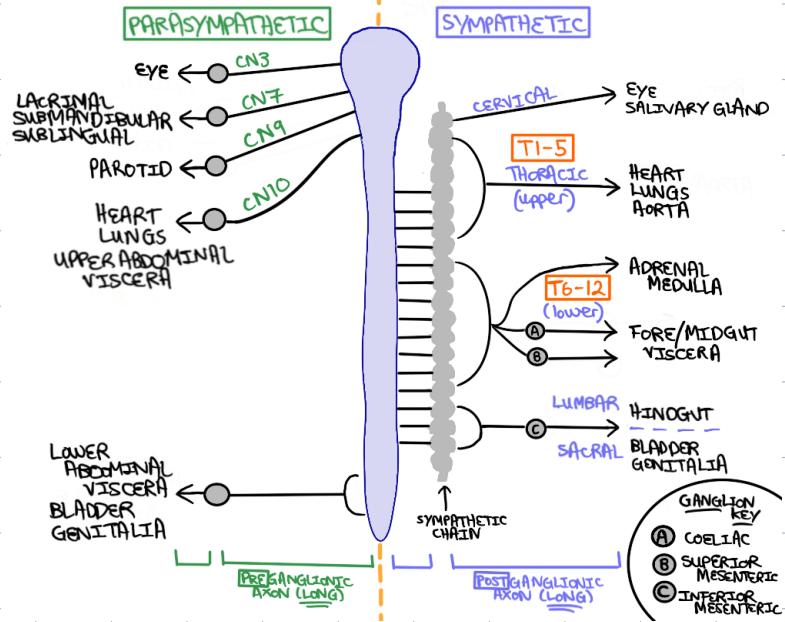 PARASYMPATHETIC
SYMPATHETIC
EYE
CN3
LACRIMAL
SUBMANDIBULAR
SUBLINGUAL
CN7
PAROTID
CN9
HEART
LUNGS
UPPER ABDOMINAL
VISCERA
CN10
LOWER
ABDOMINAL
VISCERA
BLADDER
GENITALIA
PREGANGLIONIC
AXON (LONG)
CERVICAL
EYE
SALIVARY GLAND
T1-5
THORACIC
(upper)
HEART
LUNGS
AORTA
ADRENAL
MEDULLA
T6-12
(lower)
A
FORE/MIDGUT
VISCERA
B
LUMBAR
HINDGUT
C
SACRAL
BLADDER
GENITALIA
SYMPATHETIC
CHAIN
POSTGANGLIONIC
AXON (LONG)
GANGLION
KEY
A COELIAC
B SUPERIOR
MESENTERIC
C INFERIOR
MESENTERIC